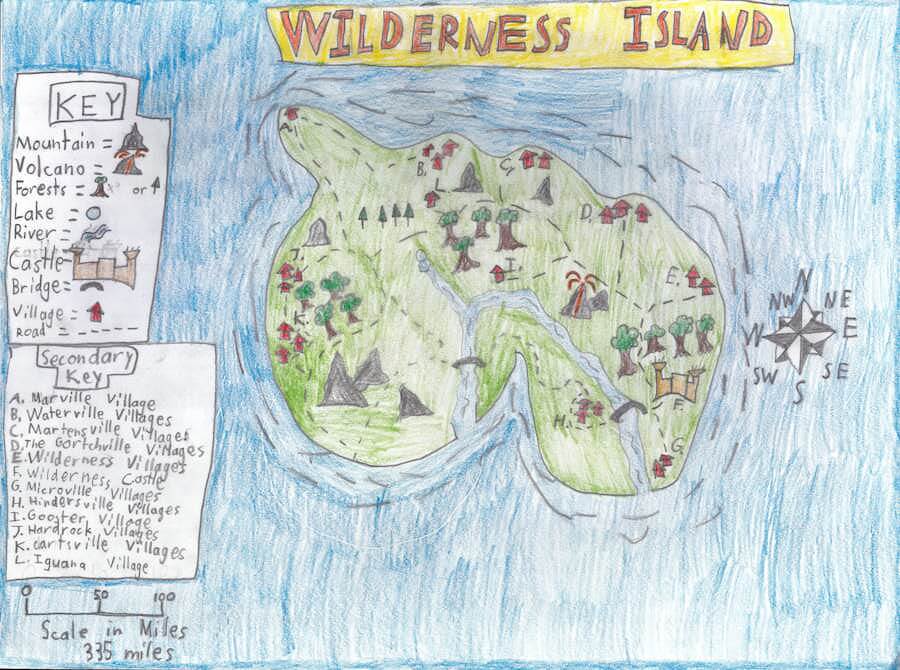 WILDERNESS ISLAND
KEY
Mountain =
Volcano =
Forests = or
Lake =
River =
Castle
Bridge=
Village =
Road =
Secondary
Key
A. Marville Village
B. Waterville Villages
C. Martensville Villages
D. The Gortchville Villages
E. Wilderness Villages
F. Wilderness Castle
G. Microville Villages
H. Hindersville Villages
I. Gooster Village
J. Hardrock Villages
K. dartsville Villages
L. Iguana Village
0 50 100
Scale in Miles
335 miles
A.
B.
C.
L.
D.
J.
I.
E.
K.
F.
H.
G.
N
NW NE
W E
SW SE
S